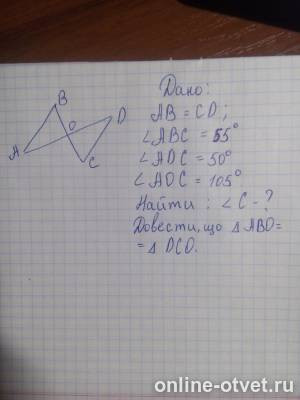 Дано:
B
AB = CD;
O
D
∠ABC = 55°
A
∠ADC = 50°
C
∠AOC = 105°
Найти: ∠C - ?
Довести, що △ ABO =
= △ DCO.
online-otvet.ru